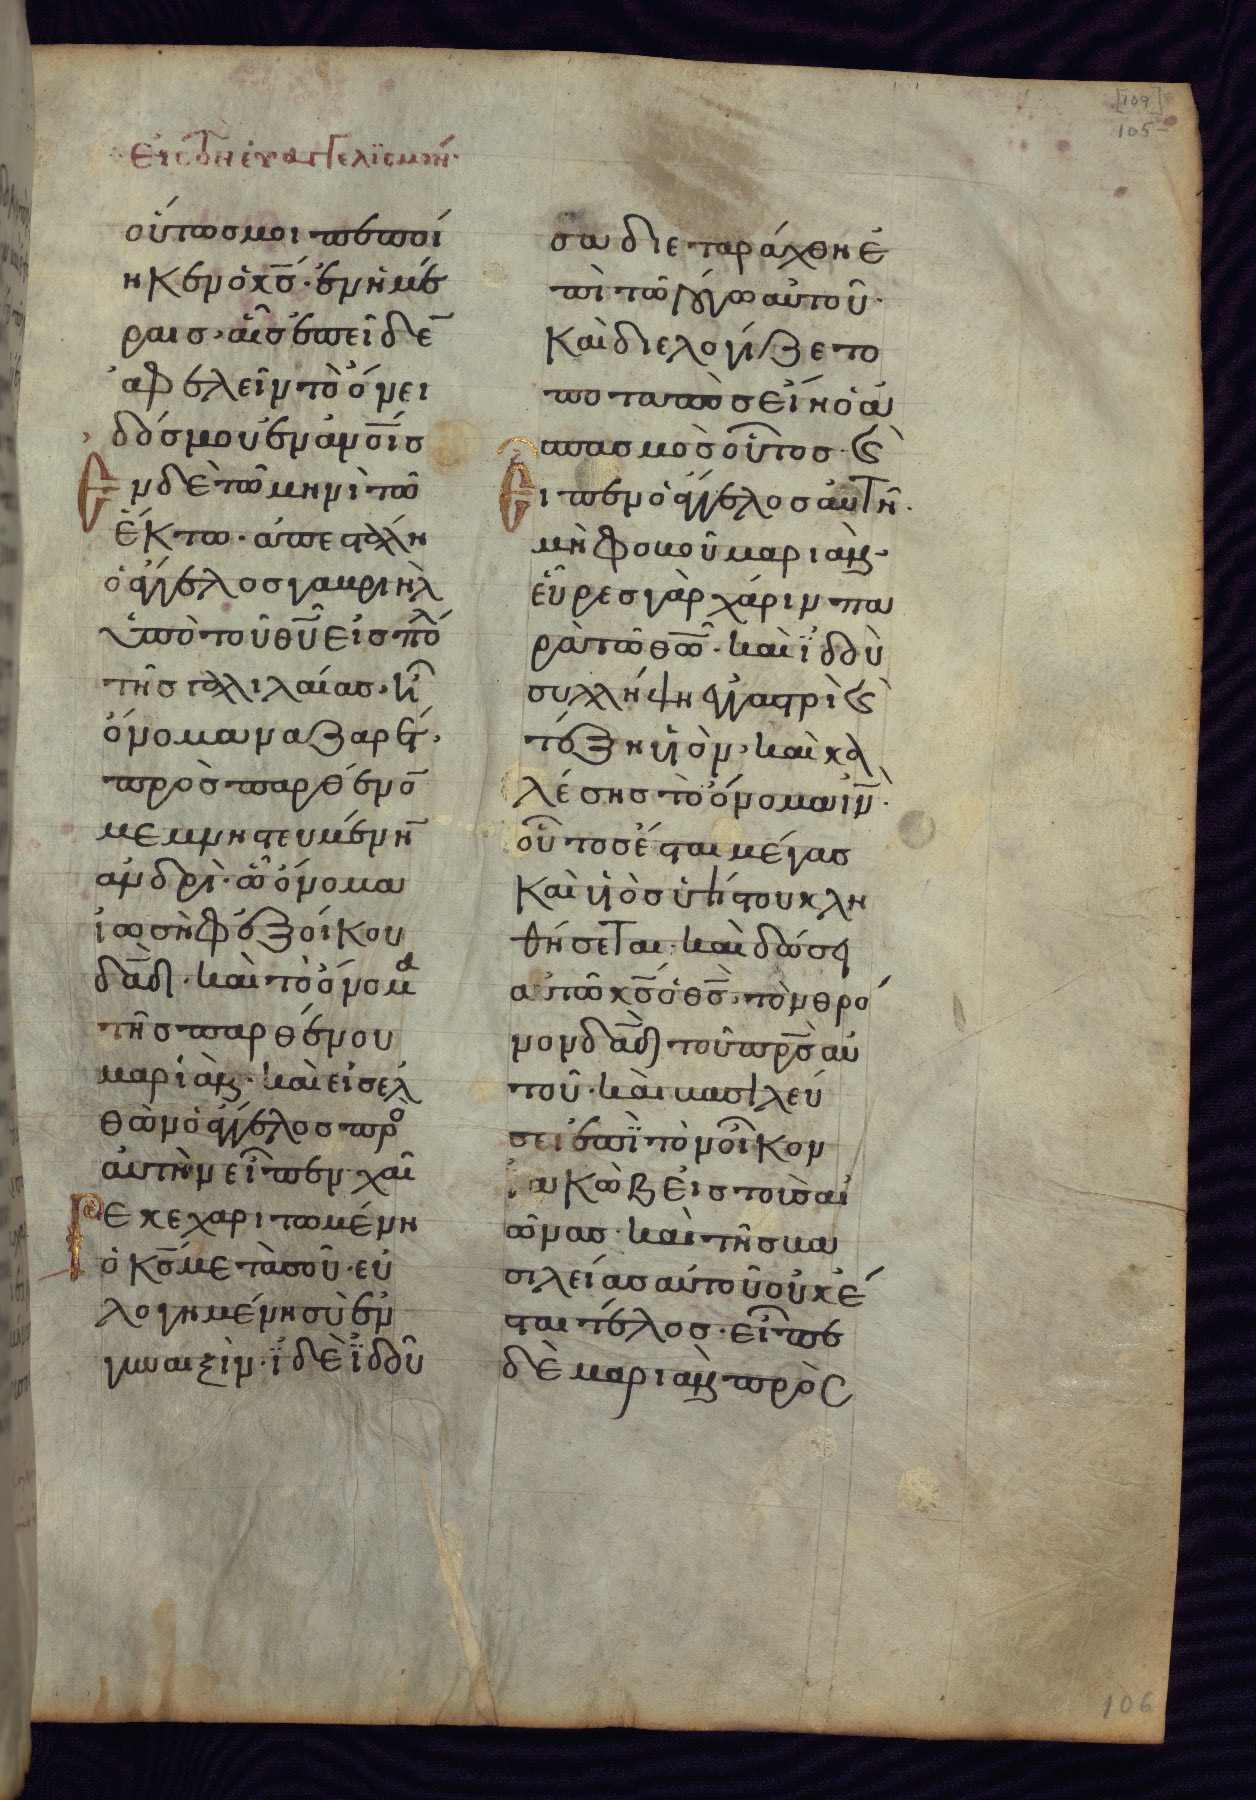 [109]
105
Εἰς τὴν εὐαγγελϊσμὴν·
οὕτωσ μοι πεποί
ηκεν ὁ κ̅σ̅· ἐν ἡμέ
ραισ· αἷσ ἐπεῖδε
ἀφελεῖν τὸ ὄνει
δόσ μου ἐν ἀν̅ο̅ισ
Εν δὲ τῶ μηνὶ τῶ
ἕκτω· ἀπεστάλη
ὁ ἄγγελοσ γαβριὴλ
ὑπὸ τοῦ θ̅υ̅ εἰσ πόλ
τῆσ γαλιλαίασ· ἧ
ὄνομα ναζαρέτ·
πρὸσ παρθένο
μεμνηστευμένη
ἀνδρὶ· ὧ ὄνομα
ἰωσὴφ ἐξ οἴκου
δα̅δ̅· καὶ τὸ ὄνομα
τῆσ παρθένου
μαριὰμ· καὶ εἰσελ
θὼν ὁ ἄγγελοσ προ
αὐτὴν εἶπεν· χαῖ
Ρε κεχαριτωμένη
ὁ κ̅σ̅ μετὰ σοῦ· εὐ
λογημένη σὺ ἐν
γυναιξὶν· ἳ δὲ ἳδοῦ
σα διεταράχθη ἐ
πὶ τῶ λόγω αὐτοῦ·
καὶ διελογίζετο
ποταπὸσ εἴη ὁ ἀ
σπασμὸσ οὗτοσ· κὲ
Εἶπεν ὁ ἄγγελοσ αὐτῆ·
μὴ φοβοῦ μαριὰμ·
εὗρεσ γὰρ χάριν πα
ρὰ τῶ θ̅ω̅· καὶ ϊδοὺ
συλλήψη ἐν γαστρὶ κὲ
τέξη υἱὸν· καὶ κα
λέσησ τὸ ὄνομα ι̅ν̅·
οὗτοσ ἔσται μέγασ
καὶ υἱὸσ ὑψίστου κλη
θήσεται· καὶ δώσει
αὐτῶ κ̅σ̅ ὁ θ̅σ̅· τὸν θρό
νον δα̅δ̅ τοῦ π̅ρ̅σ̅ αὐ
τοῦ· καὶ βασιλεύ
σει ἐπῒ τὸν οἶκον
ἰακὼβ εἰσ τοὺσ αἰ
ῶνασ· καὶ τῆσ βα
σιλείασ αὐτοῦ οὐκ ἔ
σται τέλοσ· εἶπε
δὲ μαριὰμ πρὸσ
106